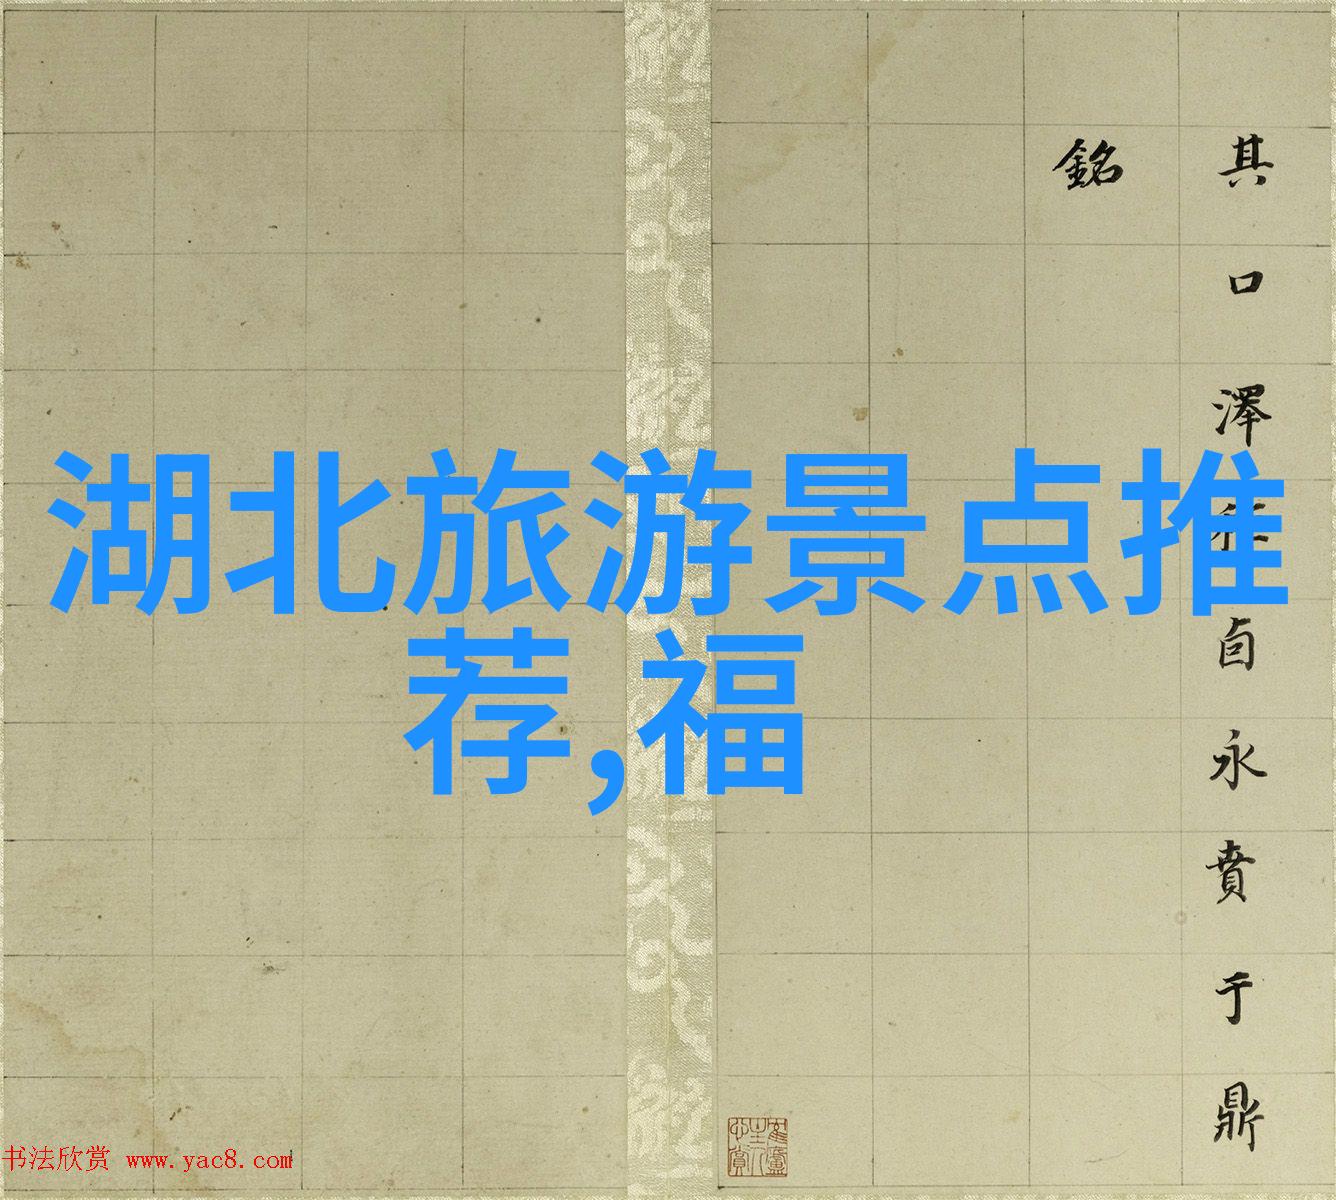 湖北旅游景点推
荐,福
其口澤
卣永賁于鼎
銘
书法欣赏 www.yac8.com